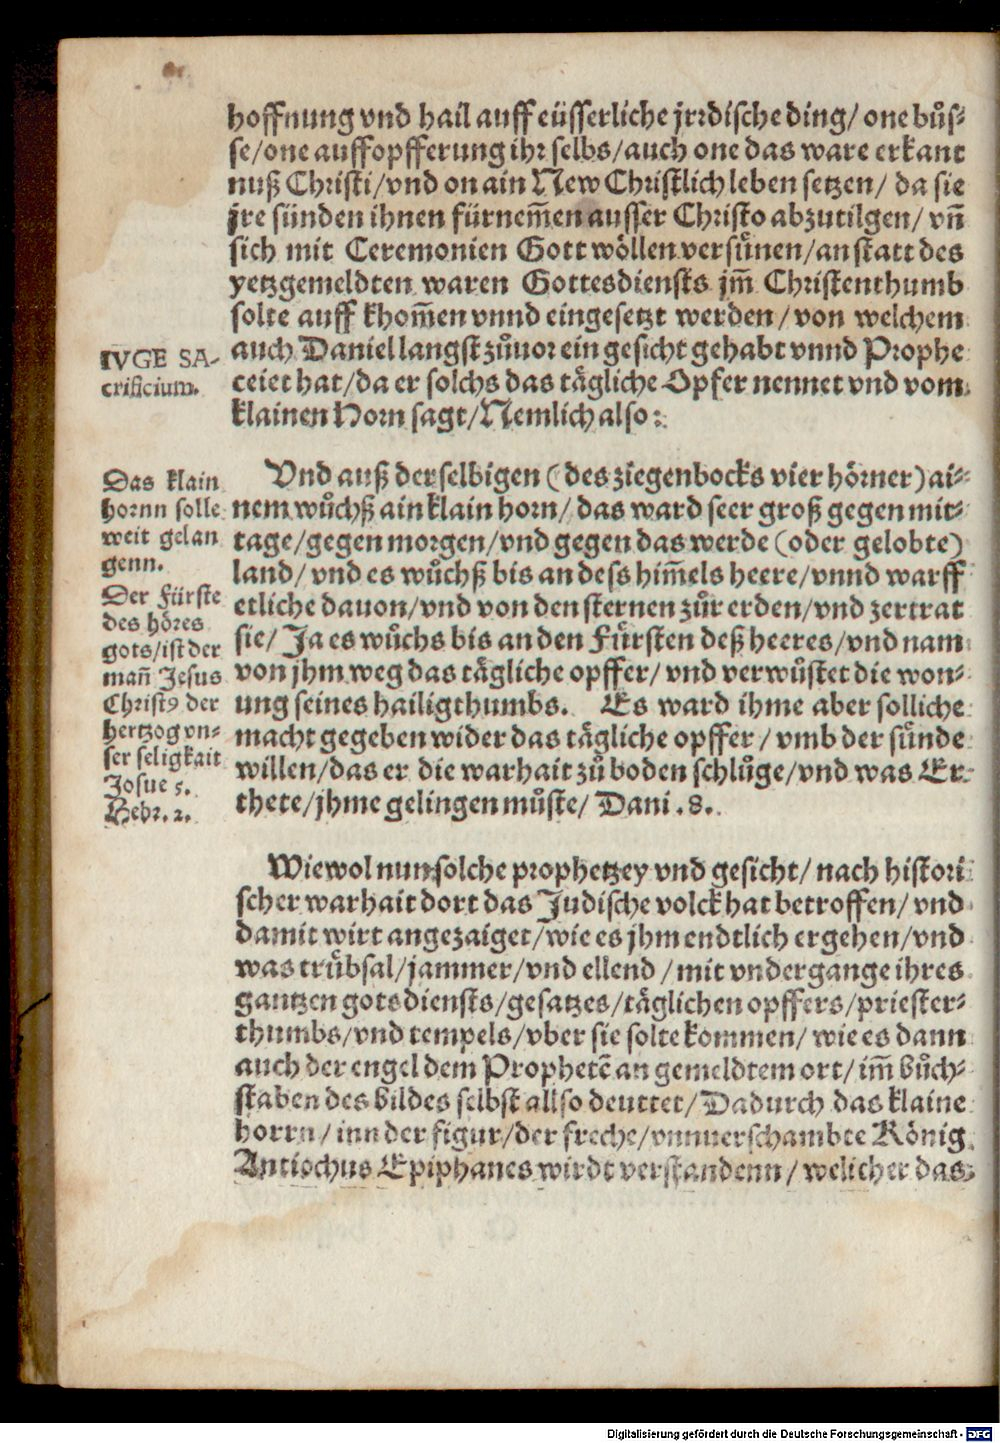 hoffnung vnd hail auff eüsserliche jrrdische ding/ one bůs-
se/one auffopfferung ihr selbs/auch one das ware erkant
nuß Christi/vnd on ain New Christlich leben setzen/ da sie
jre sünden ihnen fürnem̃en ausser Christo abzutilgen/ vñ
sich mit Ceremonien Gott wöllen versůnen/an statt des
yetzgemeldten waren Gottesdiensts jm̃ Christenthumb
solte auff khom̃en vnnd eingesetzt werden/von welchem
auch Daniel langst zůuor ein gesicht gehabt vnnd Prophe
ceiet hat/da er solchs das tägliche Opfer nennet vnd vom
klainen Horn sagt/Nemlich also:
IVGE SA-
crificium.
Vnd auß derselbigen (des ziegenbocks vier hörner)ai-
nem wůchß ain klain horn/ das ward seer groß gegen mit-
tage/gegen morgen/vnd gegen das werde (oder gelobte)
land/ vnd es wůchß bis an dess him̃els heere/vnnd warff
etliche dauon/vnd von den sternen zůr erden/vnd zertrat
sie/ Ja es wůchs bis an den Fürsten deß heeres/vnd nam
von jhm weg das tägliche opffer/ vnd verwůstet die won-
ung seines hailigthumbs. Es ward ihme aber solliche
macht gegeben wider das tägliche opffer / vmb der sünde
willen/das er die warhait zů boden schlůge/vnd was Er
thete/jhme gelingen můste/ Dani .8.
Das klain
hornn solle
weit gelan
genn.
Der Fürste
des höres
gots/ist der
mañ Jesus
Christꝰ der
hertzog vn-
ser seligkait
Josue 5.
Hebr. 2.
Wiewol nun solche prophetzey vnd gesicht/ nach histori
scher warhait dort das Judische volck hat betroffen/ vnd
damit wirt angezaiget/wie es jhm endtlich ergehen/vnd
was trůbsal/jammer/vnd ellend /mit vndergange ihres
gantzen gotsdiensts/gesatzes/täglichen opffers/priester-
thumbs/vnd tempels/vber sie solte kommen/ wie es dann
auch der engel dem Prophetẽ an gemeldtem ort/im̃ bůch-
staben des bildes selbst allso deuttet/Dadurch das klaine
horrn / inn der figur/der freche/vnnuerschambte König
Antiochus Epiphanes wirdt verstandenn/ welicher das
Digitalisierung gefördert durch die Deutsche Forschungsgemeinschaft - DFG